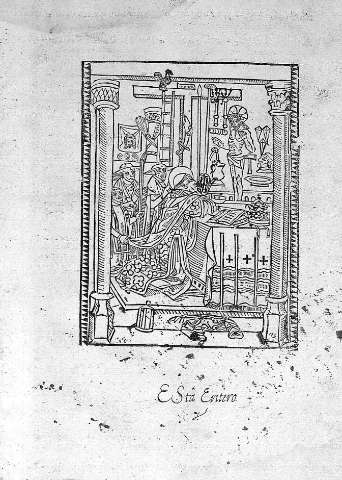 EStà Entero